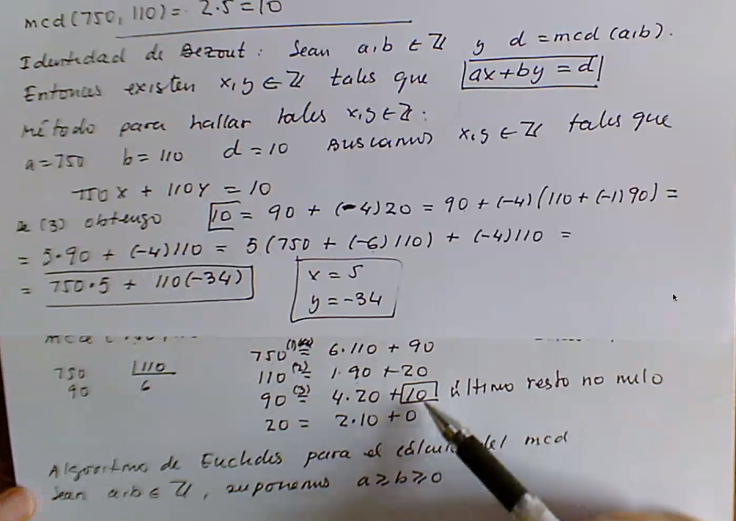 mcd(750, 110) = 2·5 = 10
Identidad de Bezout : Sean a,b ∈ ℤ y d = mcd(a,b).
Entonces existen x,y ∈ ℤ tales que ax+by = d
Método para hallar tales x,y ∈ ℤ :
a = 750 b = 110 d = 10 Buscamos x,y ∈ ℤ tales que
750x + 110y = 10
De (3) obtengo 10 = 90 + (-4)20 = 90 + (-4)(110 + (-1)90) =
= 5·90 + (-4)110 = 5(750 + (-6)110) + (-4)110 =
= 750·5 + 110(-34)
x = 5
y = -34
750 (1)= 6·110 + 90
750 110
110 (2)= 1·90 + 20
90 6
90 (3)= 4·20 + 10 último resto no nulo
20 = 2·10 + 0
Algoritmo de Euclides para el cálculo del mcd
Sean a,b ∈ ℤ, suponemos a ≥ b ≥ 0